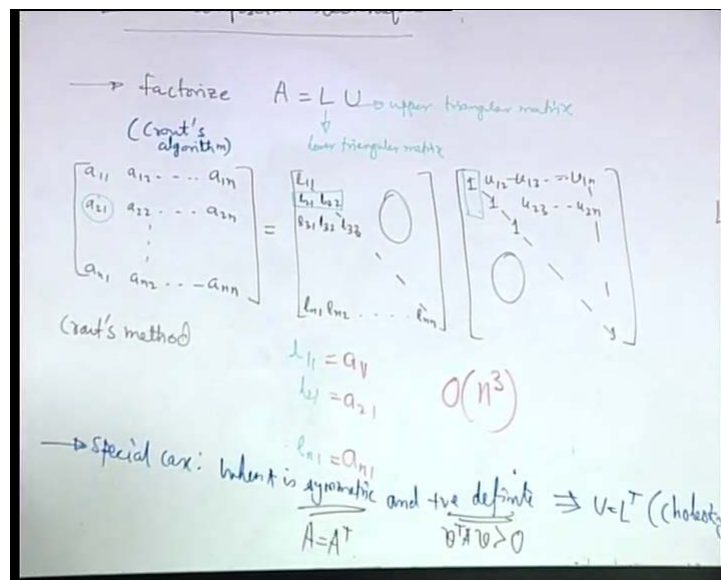 → factorize A = L U → upper triangular matrix
↓
lower triangular matrix
(Crout's algorithm)
a11 a12 . . . . a1n
a21 a22 . . . a2n
⋮
an1 an2 . . . - ann
=
l11
l21 l22
l31 l32 l33
ln1 ln2 . . . . . lnn
1 u12 - u13 . - - u1n
1 u23 . . - u2n
1
Crout's method
l11 = a11
l21 = a21
O(n³)
ln1 = an1
→ Special case: When A is symmetric and +ve definite ⇒ U = Lᵀ (Cholesky
A = Aᵀ vᵀAv > 0